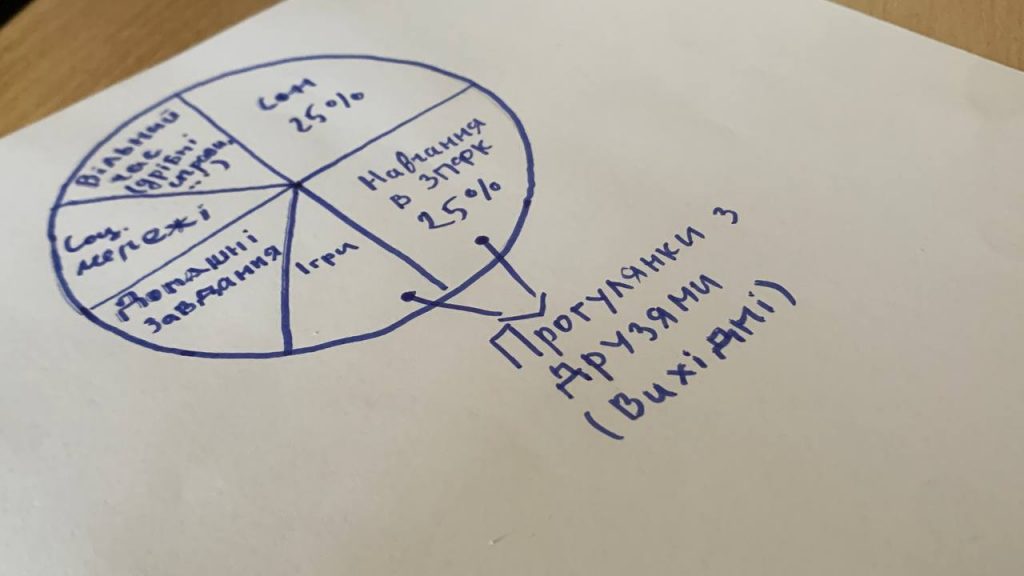 Сон
25%
Навчання
в ЗПФК
25%
Ігри
Домашні
завдання
Соц.
мережі
Вільний
час
(дрібні
Прогулянки з
друзями
(Вихідні)